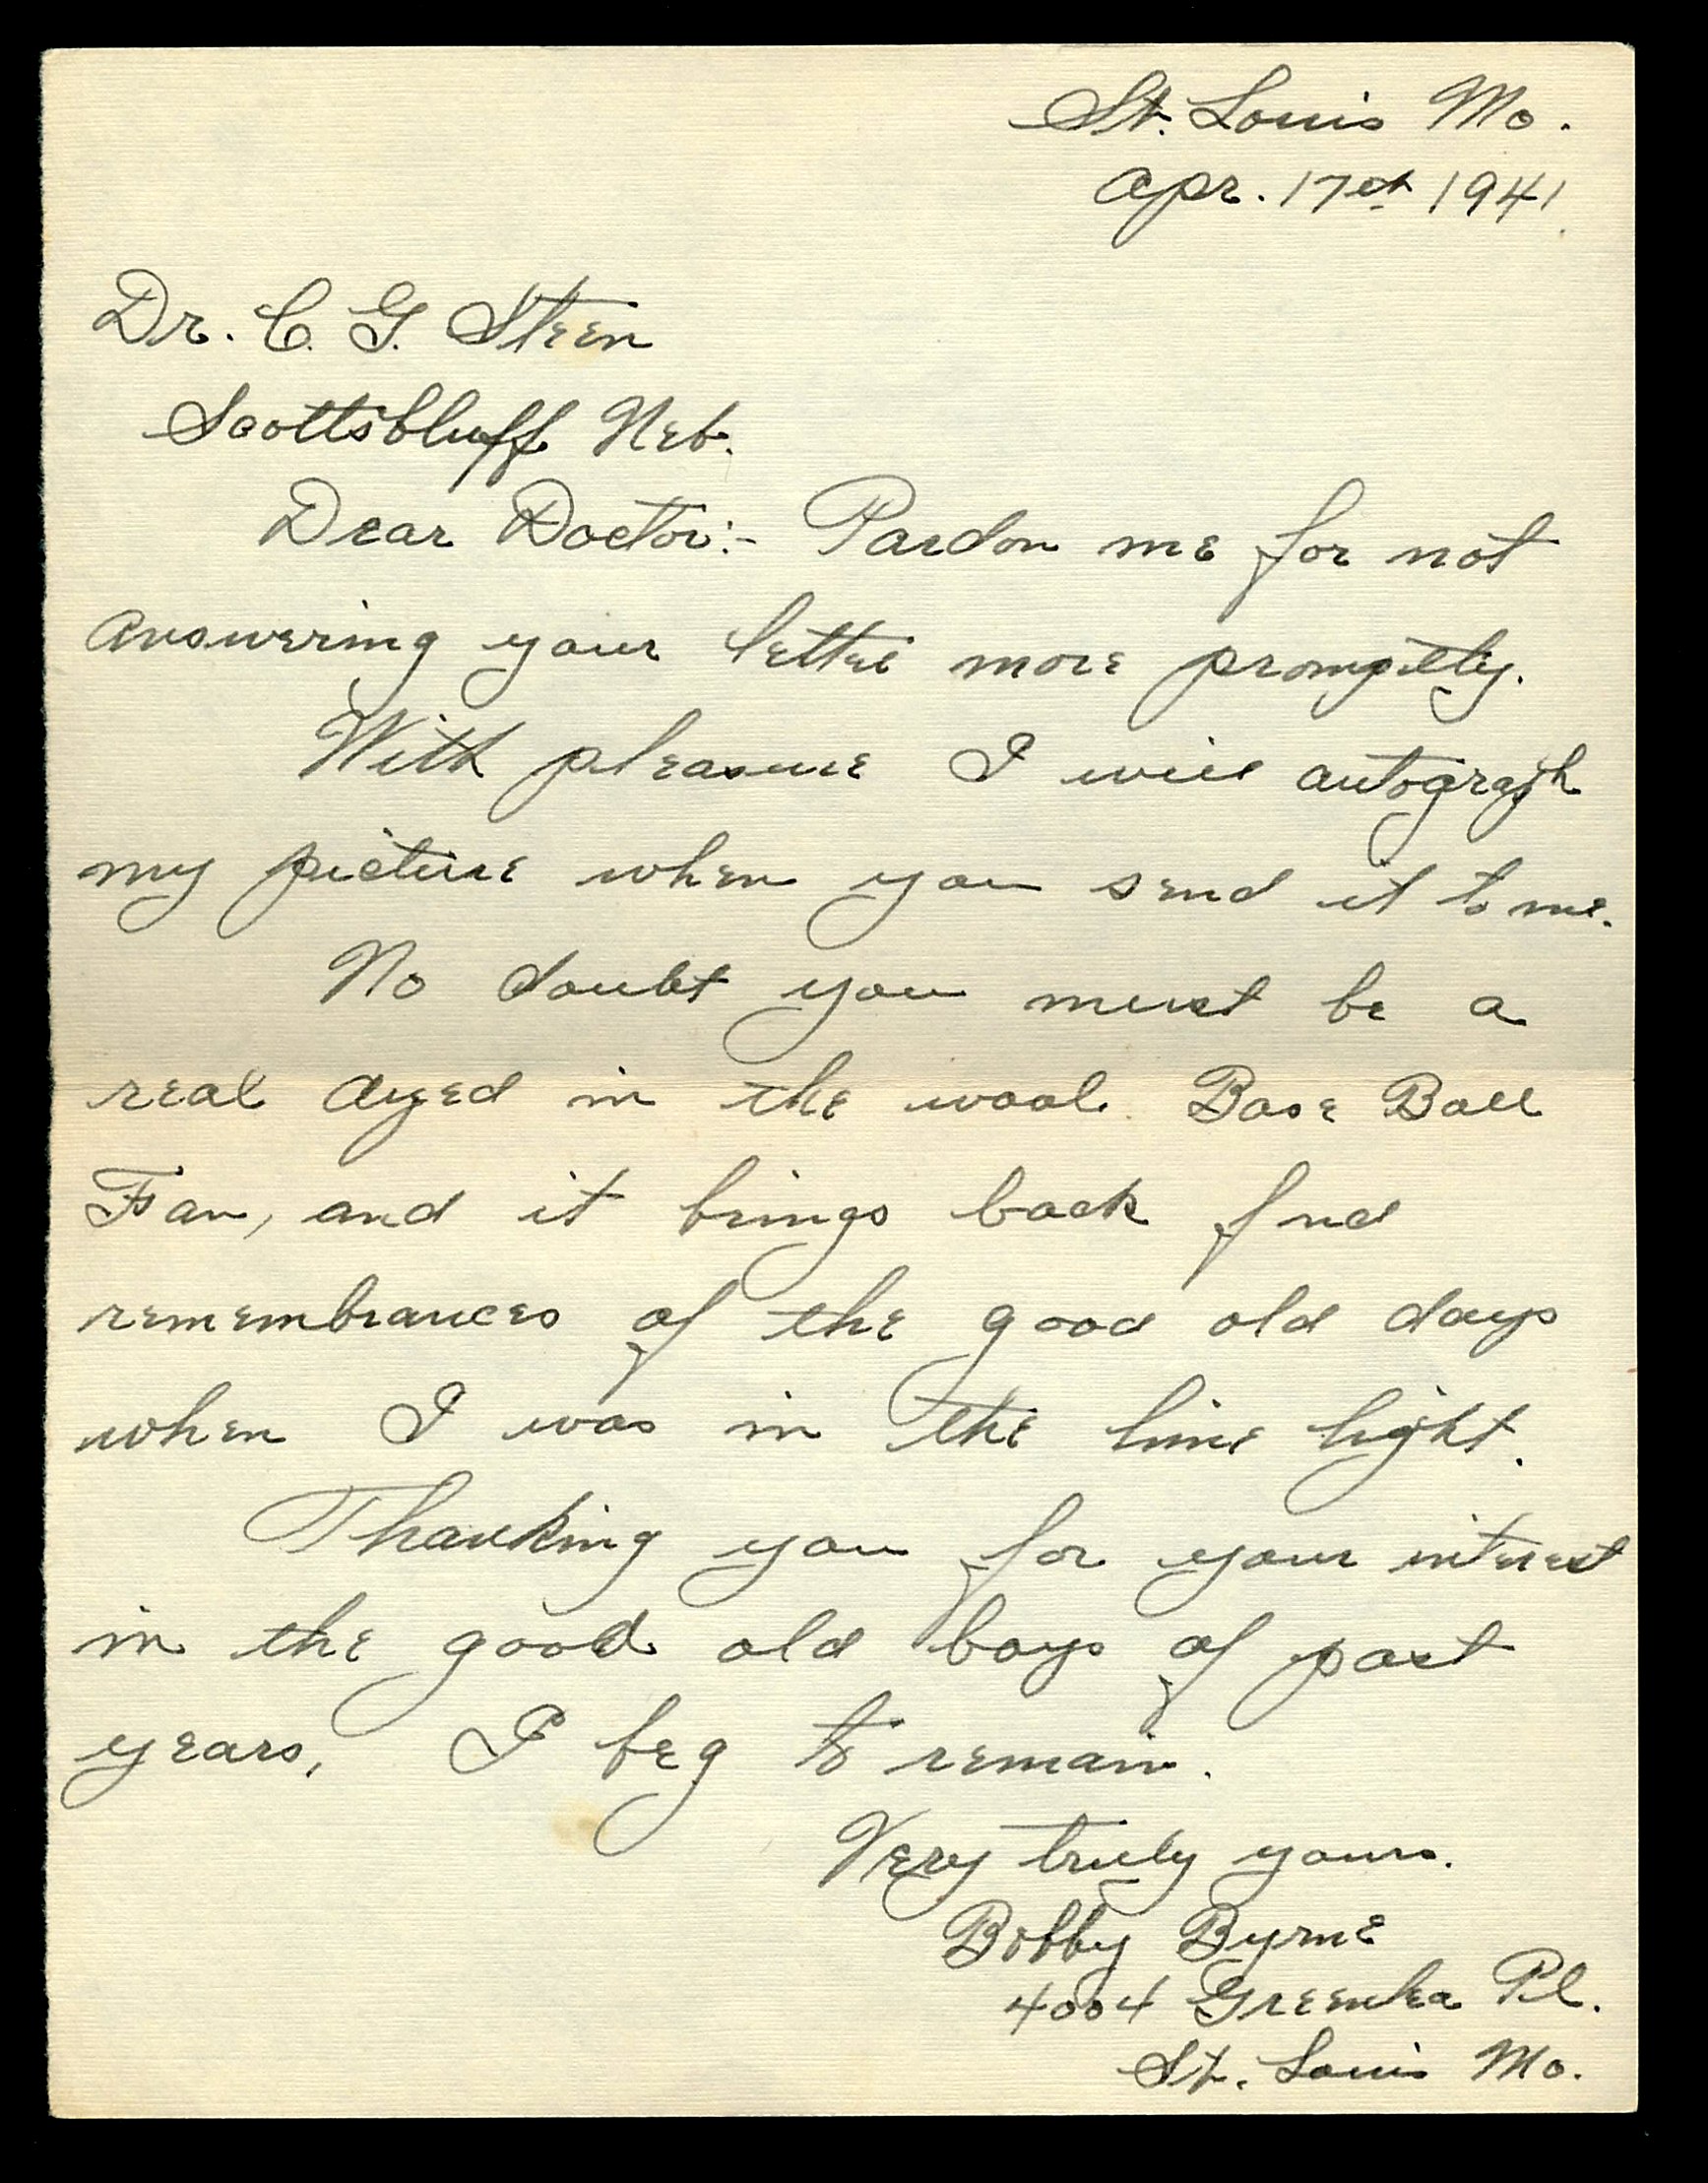 St. Louis Mo.
Apr. 17et 1941
Dr. C. G. Steen
Scottsbluff Neb.
Dear Doctor:- Pardon me for not
answering your letter more promptly.
With pleasure I will autograph
my picture when you send it to me.
No doubt you must be a
real dyed in the wool Base Ball
Fan, and it brings back fnd
remembrances of the good old days
when I was in the lime light.
Thanking you for your interest
in the good old boys of past
years, I beg to remain.
Very truly yours.
Bobby Byrne
4004 Greenlea Pl.
St. Louis Mo.